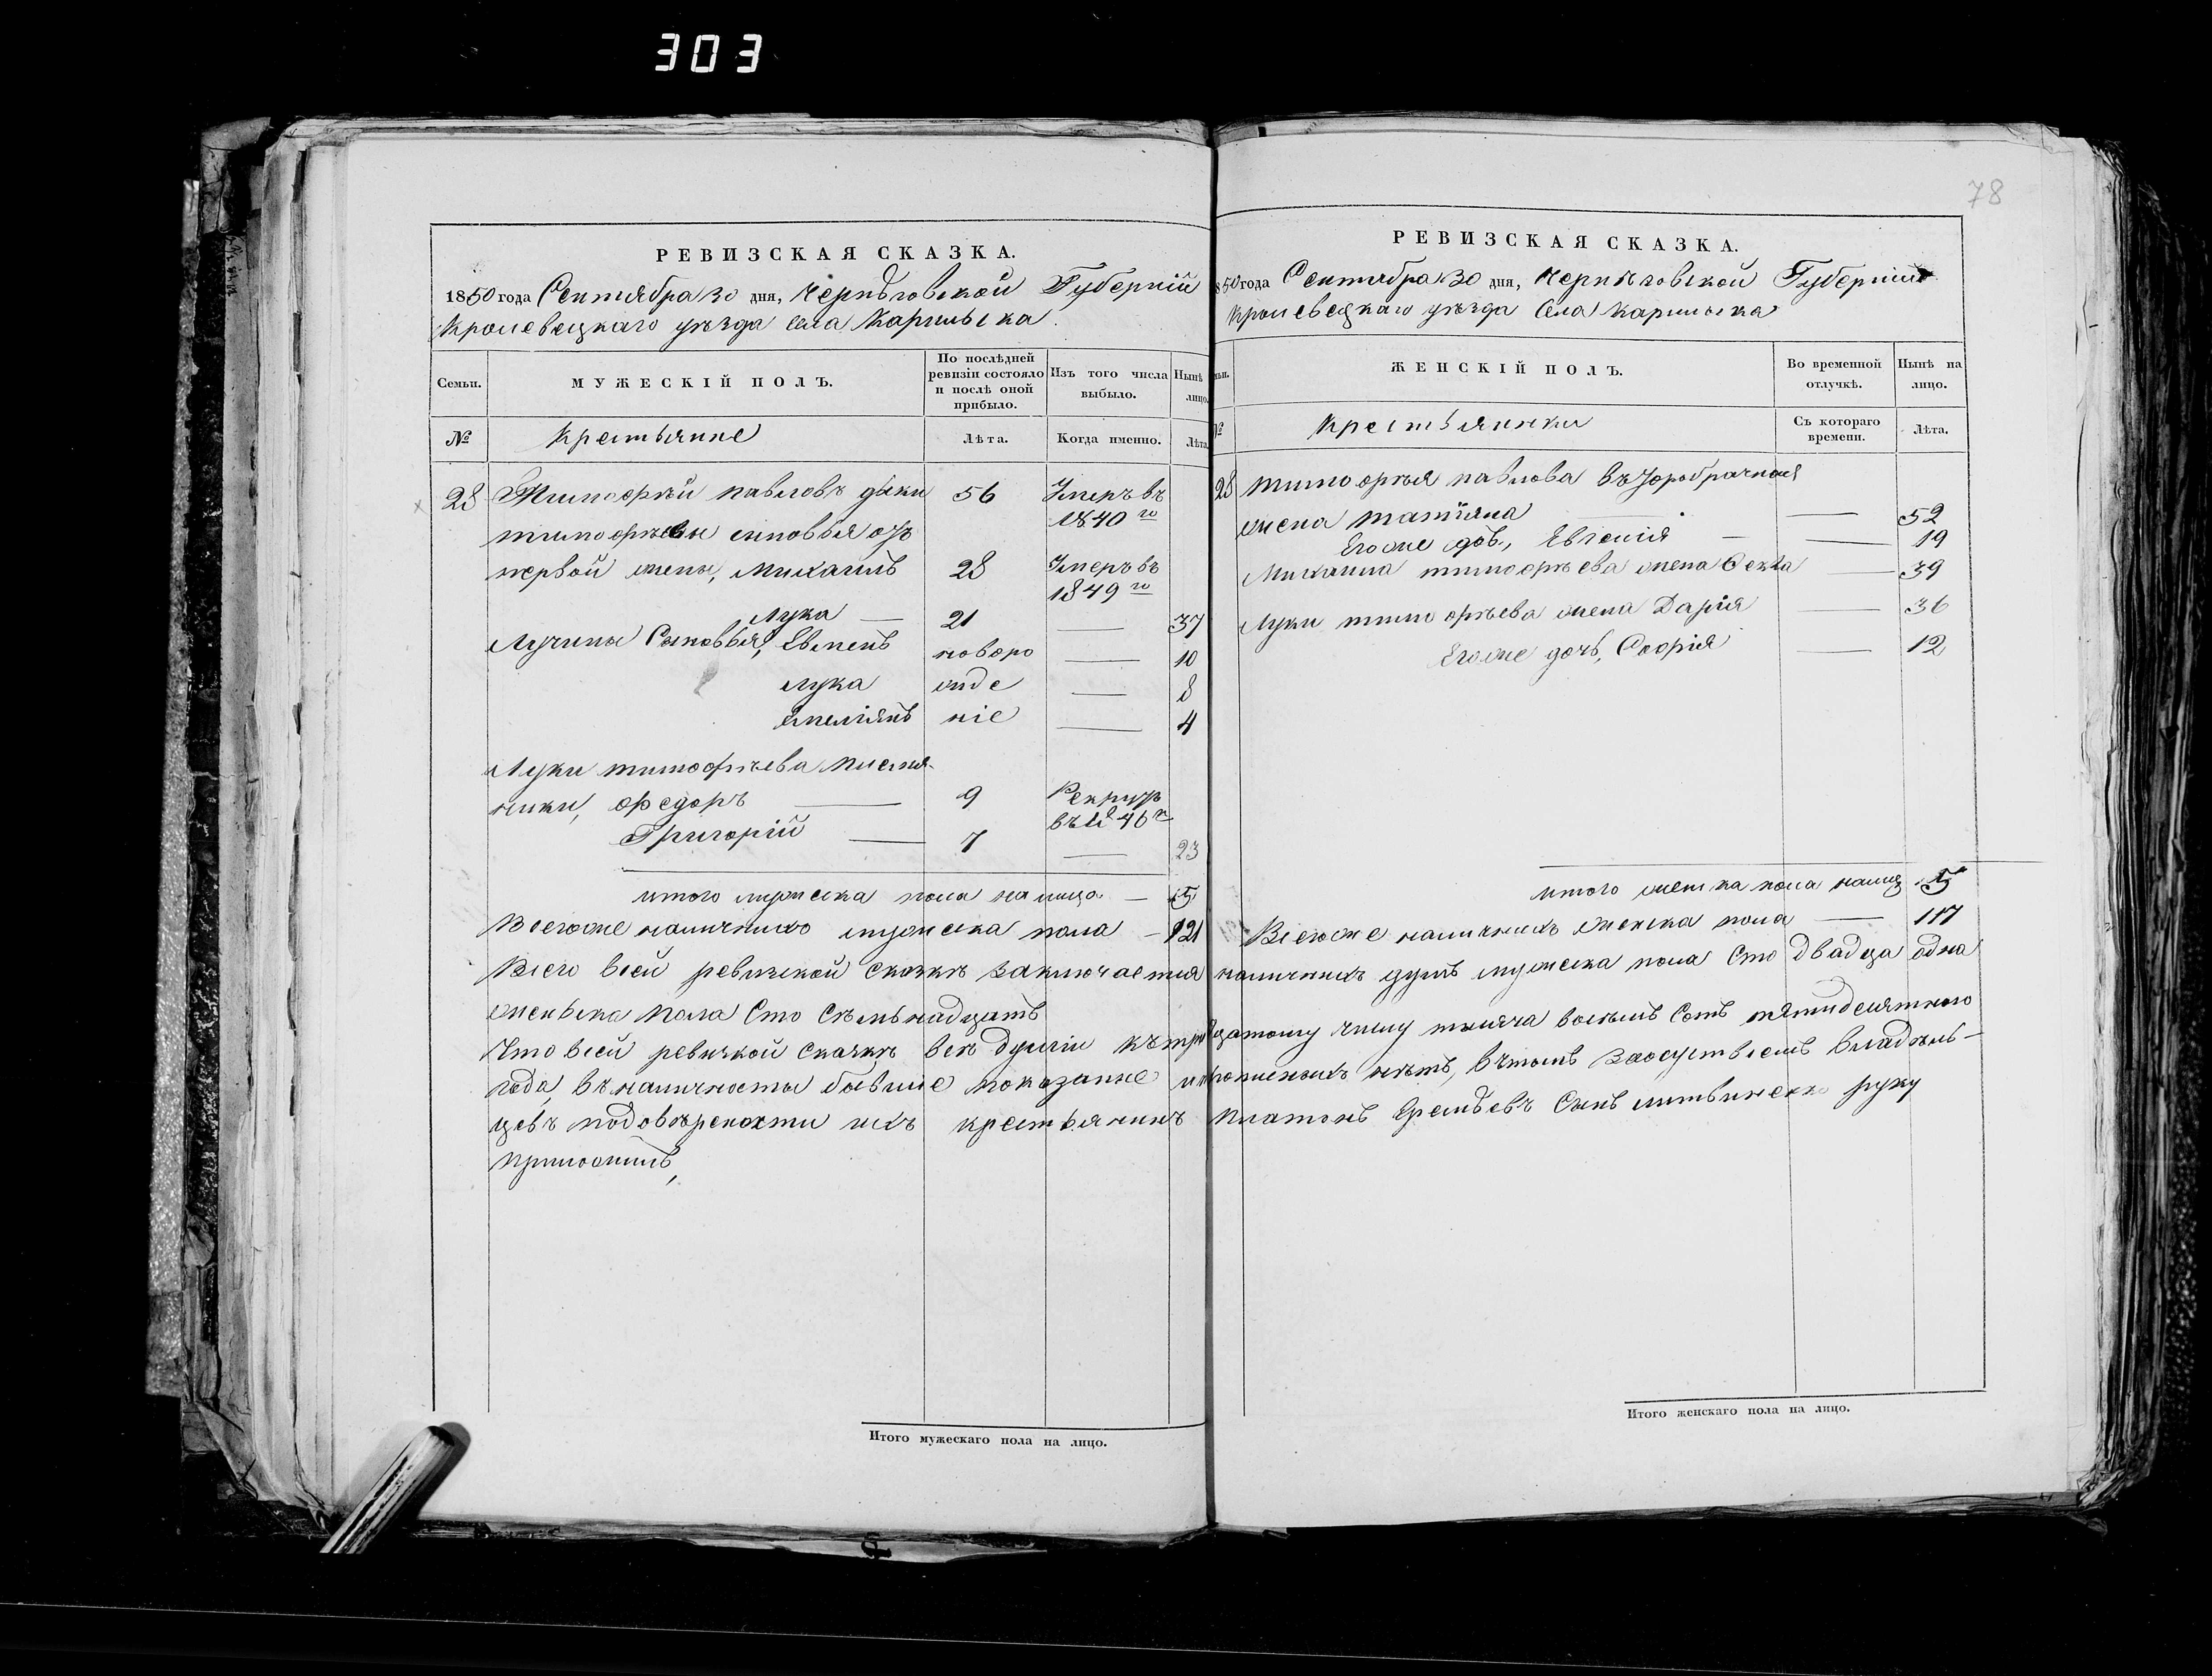 303
78
РЕВИЗСКАЯ СКАЗКА.
1850 года Сентября 30 дня, Чернѣговской Губерніи
Кролевецкаго уѣзда села Карпильска
Семьи.
МУЖЕСКІЙ ПОЛЪ.
По послѣдней ревизіи состояло и послѣ оной прибыло.
Изъ того числа выбыло.
Нынѣ лицо.
№
Крестьянне
Лѣта.
Когда именно.
Лѣта
28 Тимофѣй Павловъ 56 Умеръ въ
1840 го
Тимофѣевы синовья отъ
первой жены, Михаилъ 28 Умеръ въ
1849 го
Лука — 21 — 37
Лучины Сыновья, Евменъ новоро — 10
Лука жде — 8
Емеліянъ ніе — 4
Луки тимофѣева племя-
ники, Федоръ — 9 Рекрутъ
въ 1846 м
Григорій — 7 — 23
итого мужеска пола на лицо — 5
Всегоже наличнихъ мужеска пола — 121
РЕВИЗСКАЯ СКАЗКА.
850 года Сентября 30 дня, Чернѣговской Губерніи
Кролевецкаго уѣзда Села Карпильска
ьи.
ЖЕНСКІЙ ПОЛЪ.
Во временной отлучкѣ.
Нынѣ на лицо.
№
Крестьянки
Съ котораго времени.
Лѣта.
28 Тимофѣя павлова второбрачная
жена Татіяна — 52
Егоже доч., Евгенія — 19
Михаила тимофѣева жена Фекла — 39
Луки тимофѣева жена Дарія — 36
Егоже дочь, Софія — 12
итого женска пола налиц 5
Всегоже наличнихъ женска пола — 117
Всего всей ревизкой сказкѣ заключается наличнихъ душъ мужеска пола Сто двадца одна
женьска пола Сто Сѣмьнадцать
Что всей ревизкой сказкѣ всѣ души къ тридцатому числу тысяча восѣмъ Сотъ пятидесятного
года, въ наличности бывшие показанне и прописнихъ нѣтъ, въ томъ владѣль-
цевъ по довѣрености ихъ крестьянинъ Платонъ Сынъ литвиненко руку
приложилъ,
Итого мужескаго пола на лицо.
Итого женскаго пола на лицо.